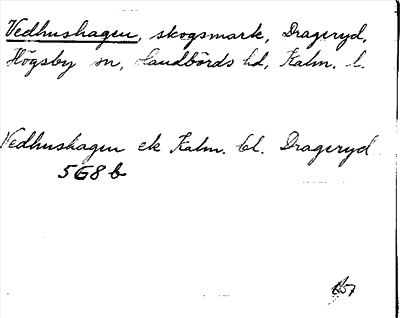 Vedhushagen, skogsmark, Drageryd,
Högsby sn, Handbörds hd, Kalm. l.
Vedhushagen ek Kalm. bl. Drageryd
568 b